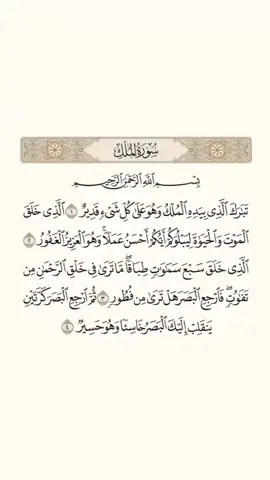 سُورَةُ المُلْكِ
بِسْمِ اللَّهِ الرَّحْمَٰنِ الرَّحِيمِ
تَبَٰرَكَ ٱلَّذِى بِيَدِهِ ٱلْمُلْكُ وَهُوَ عَلَىٰ كُلِّ شَىْءٍ قَدِيرٌ ١ ٱلَّذِى خَلَقَ
ٱلْمَوْتَ وَٱلْحَيَوٰةَ لِيَبْلُوَكُمْ أَيُّكُمْ أَحْسَنُ عَمَلًا ۚ وَهُوَ ٱلْعَزِيزُ ٱلْغَفُورُ ٢
ٱلَّذِى خَلَقَ سَبْعَ سَمَٰوَٰتٍ طِبَاقًا ۖ مَّا تَرَىٰ فِى خَلْقِ ٱلرَّحْمَٰنِ مِن
تَفَٰوُتٍ ۖ فَٱرْجِعِ ٱلْبَصَرَ هَلْ تَرَىٰ مِن فُطُورٍ ٣ ثُمَّ ٱرْجِعِ ٱلْبَصَرَ كَرَّتَيْنِ
يَنقَلِبْ إِلَيْكَ ٱلْبَصَرُ خَاسِئًا وَهُوَ حَسِيرٌ ٤